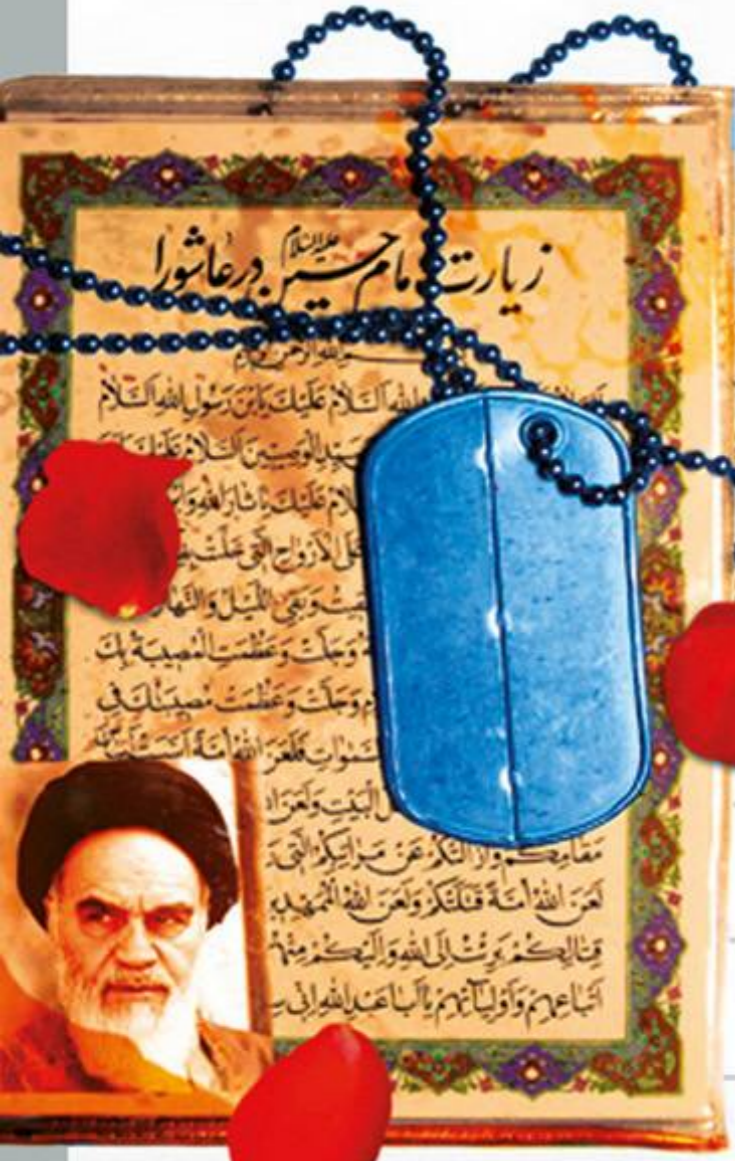 زیارت امام حسین علیه‌السلام در عاشورا
اَلسَّلامُ عَلَيْكَ يَابْنَ رَسُولِ اللهِ اَلسَّلامُ
سَيِّدِ الْوَصِيّينَ اَلسَّلامُ عَلَيْكَ
عَلَيْكَ يا ثارَ اللهِ
عَلَى الْاَرْواحِ الَّتي حَلَّتْ
وَبَقِيَ اللَّيْلُ وَالنَّهارُ
وَجَلَّتْ وَعَظُمَتِ الْمُصيبَةُ بِكَ
وَجَلَّتْ وَعَظُمَتْ مُصيبَتُكَ فِي
فَلَعَنَ اللهُ اُمَّةً اَسَّسَتْ
الْبَيْتِ وَلَعَنَ
مَقامِكُمْ وَاَزالَتْكُمْ عَنْ مَراتِبِكُمُ الَّتي
لَعَنَ اللهُ اُمَّةً قَتَلَتْكُمْ وَلَعَنَ اللهُ الْمُمَهِّدينَ
قِتالِكُمْ بَرِئْتُ اِلَى اللهِ وَاِلَيْكُمْ مِنْهُمْ
اَتْباعِهِمْ وَاَوْلِيآئِهِمْ يا اَبا عَبْدِ اللهِ اِنّي